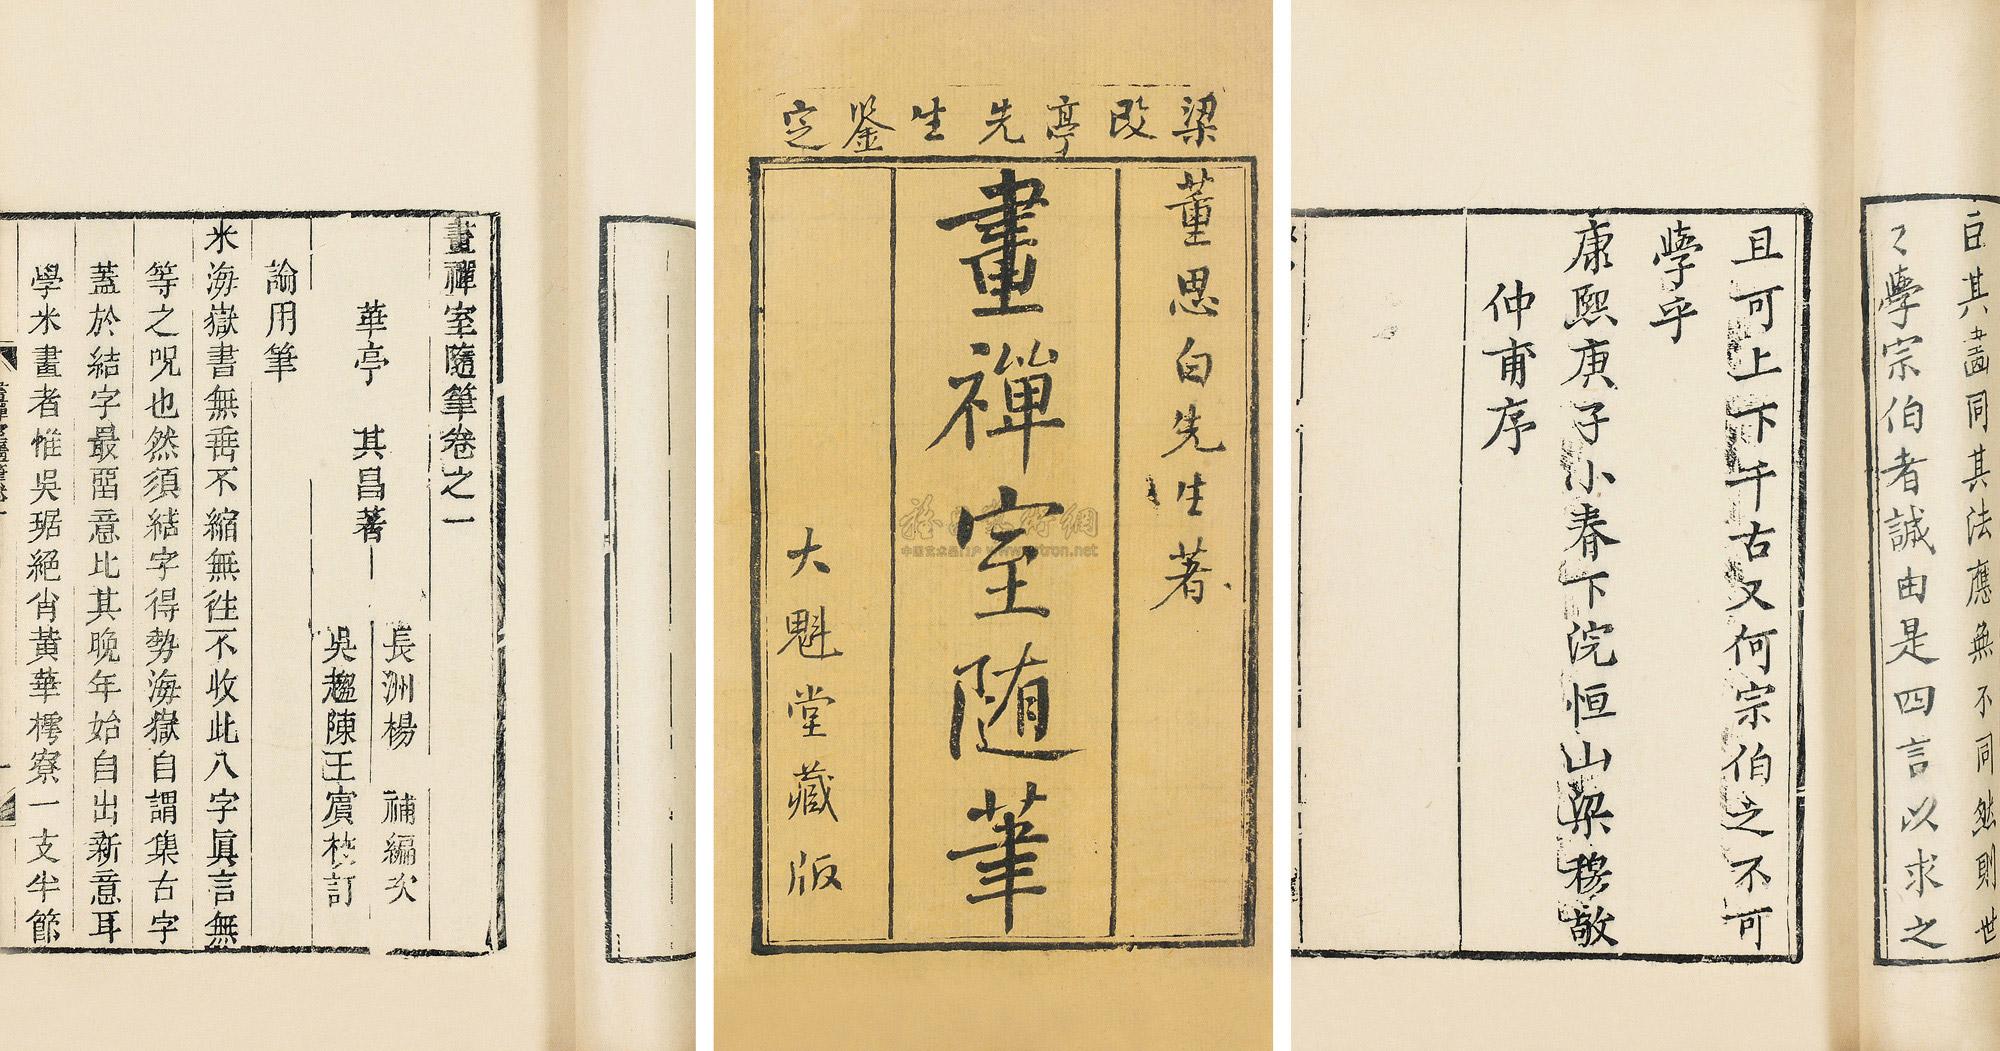 畫禪室隨筆卷之一
華亭 其昌著
長洲楊 補編次
吳趨陳王賓校訂
論用筆
米海嶽書無垂不縮無往不收此八字眞言無
等之呪也然須結字得勢海嶽自謂集古字
蓋於結字最畱意比其晚年始自出新意耳
學米畫者惟吳琚絕肖黃華樗寮一支半節
梁改亭先生鉴定
董思白先生著
畫禪室随筆
大魁堂藏版
雅昌艺术網
中国艺术品门户 www.artron.net
其畫同其法應無不同然則世
之學宗伯者誠由是四言以求之
且可上下千古又何宗伯之不可
學乎
康熙庚子小春下浣恒山梁穆敬
仲甫序